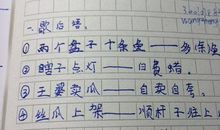 歇后语
①两个盘子十条鱼——多
②瞎子点灯——白费蜡。
③王婆卖瓜——自卖自夸。
④丝瓜上架——顺杆子往上